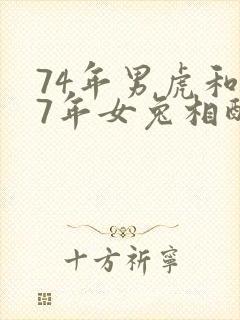 74年男虎和
7年女兔相配
十方祈寧